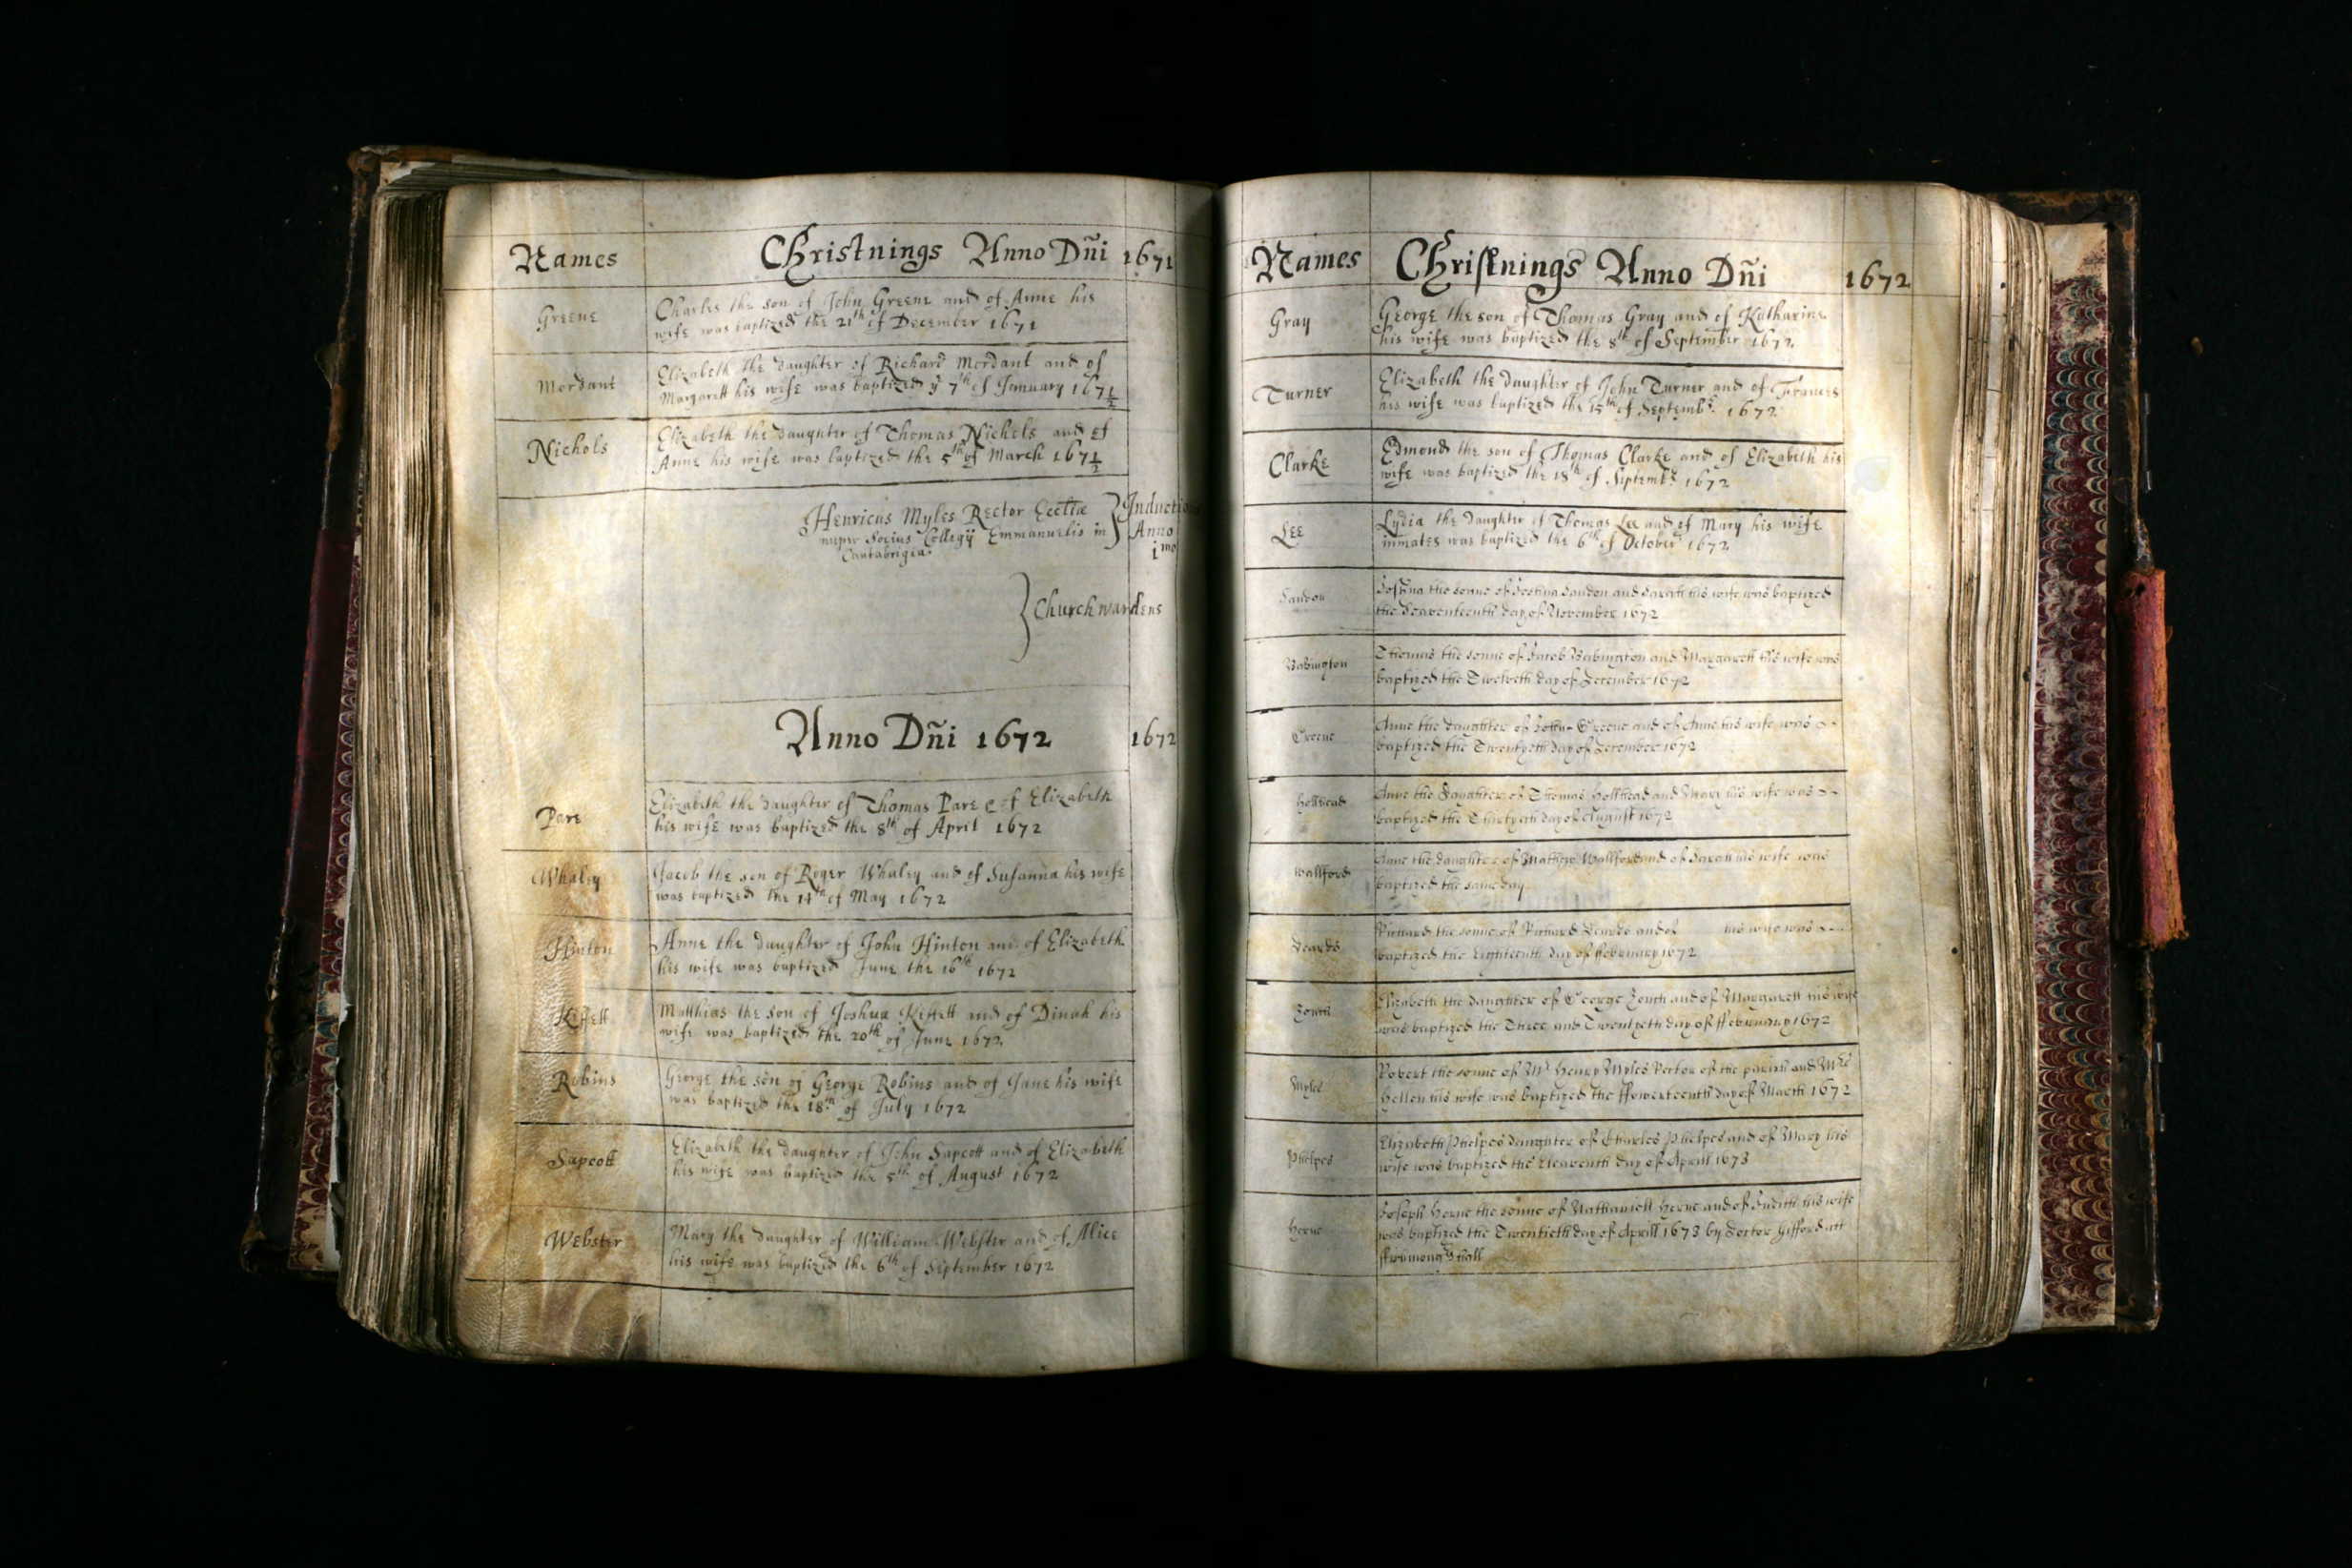 Names Christnings Anno Dñi 1671
Greene Charles the son of John Greene and of Anne his
wife was baptized the 21th of December 1671
Mordant Elizabeth the daughter of Richard Mordant and of
Margarett his wife was baptized ye 7th of January 167 1/2
Nichols Elizabeth the daughter of Thomas Nichols and of
Anne his wife was baptized the 5th of March 167 1/2
Henricus Myles Rector Eccłiæ } Inductionis
nuper Socius Collegij Emmanuelis in Anno
Cantabrigia 1mo
} Churchwardens
Anno Dñi 1672 1672
Pare Elizabeth the daughter of Thomas Pare & of Elizabeth
his wife was baptized the 8th of April 1672
Whaley Jacob the son of Roger Whaley and of Susanna his wife
was baptized the 14th of May 1672
Hinton Anne the daughter of John Hinton and of Elizabeth
his wife was baptized June the 16th 1672
Matthias the son of Joshua and of Dinah his
wife was baptized the 20th of June 1672
Robins George the son of George Robins and of Jane his wife
was baptized the 18th of July 1672
Sapcott Elizabeth the daughter of John Sapcott and of Elizabeth
his wife was baptized the 5th of August 1672
Webster Mary the daughter of William Webster and of Alice
his wife was baptized the 6th of September 1672
Names Christnings Anno Dñi 1672
Gray George the son of Thomas Gray and of Katharine
his wife was baptized the 8th of September 1672
Turner Elizabeth the daughter of John Turner and of Frances
his wife was baptized the 15th of Septembr. 1672
Clarke Edmond the son of Thomas Clarke and of Elizabeth his
wife was baptized the 18th of Septembr. 1672
Lee Lydia the daughter of Thomas Lee and of Mary his wife
inmates was baptized the 6th of October 1672
Sandon the sonne of Sandon and Sarah his wife was baptized
the Seaventeenth day of November 1672
Babington Thomas the sonne of Jacob Babington and Margarett his wife was
baptized the Twelveth day of December 1672
Greene Anne the daughter of John Greene and of Anne his wife was
baptized the Twentyeth day of December 1672
Hollhead Anne the daughter of Thomas Hollhead and Mary his wife was
baptized the Thirtyeth day of August 1672
Wallford Anne the daughter of Mathew Wallford and of Sarah his wife was
baptized the same day
Beards Richard the sonne of Richard Beards and of his wife was
baptized the Eighteenth day of ffebruary 1672
Zouch Elizabeth the daughter of George Zouch and of Margarett his wife
was baptized the Three and Twentyeth day of ffebruary 1672
Myles Robert the sonne of Mr Henry Myles Rector of the parish and Mrs
Hellen his wife was baptized the ffowerteenth day of March 1672
Phelpes Elizabeth Phelpes daughter of Charles Phelpes and of Mary his
wife was baptized the Eleaventh day of Aprill 1673
Herne Joseph Herne the sonne of Nathaniell Herne and of Judith his wife
was baptized the Twentieth day of Aprill 1673 by Doctor Gifford att
hall